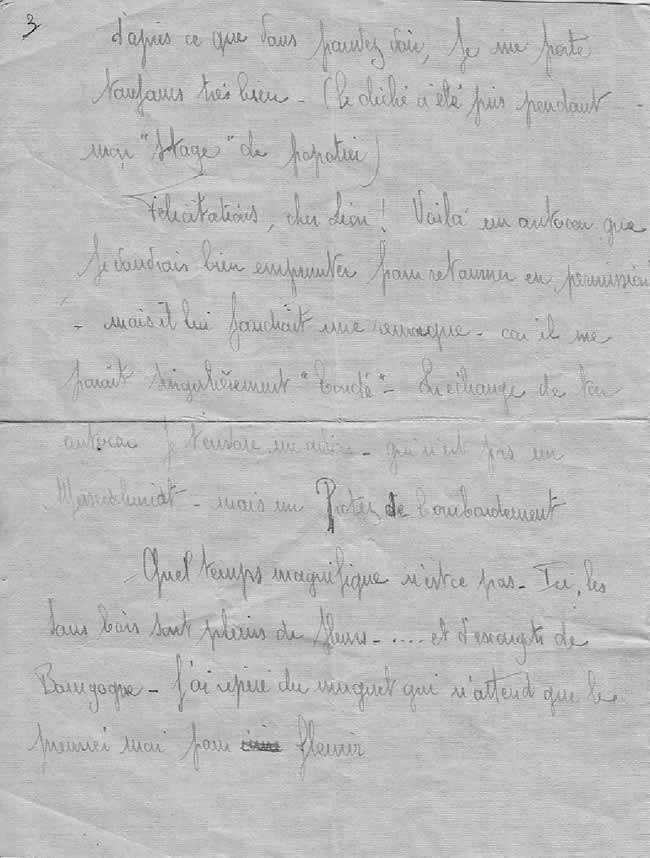 3
d'après ce que vous pouvez voir, je me porte
toujours très bien - (le cliché a été pris pendant -
mon "stage" de popotier)
Félicitations, cher Léon ! Voilà un autocar que
je voudrais bien emprunter pour retourner en permission
- mais il lui faudrait une remorque - car il me
paraît singulièrement "bondé" - En échange de ton
autocar je t'envoie un avion - qui n'est pas un
Messerschmidt - mais un Potez de bombardement
Quel temps magnifique n'est ce pas - Ici, les
sous bois sont pleins de fleurs - .... et d'escargots de
Bourgogne - J'ai repéré du muguet qui n'attend que le
premier mai pour fleurir